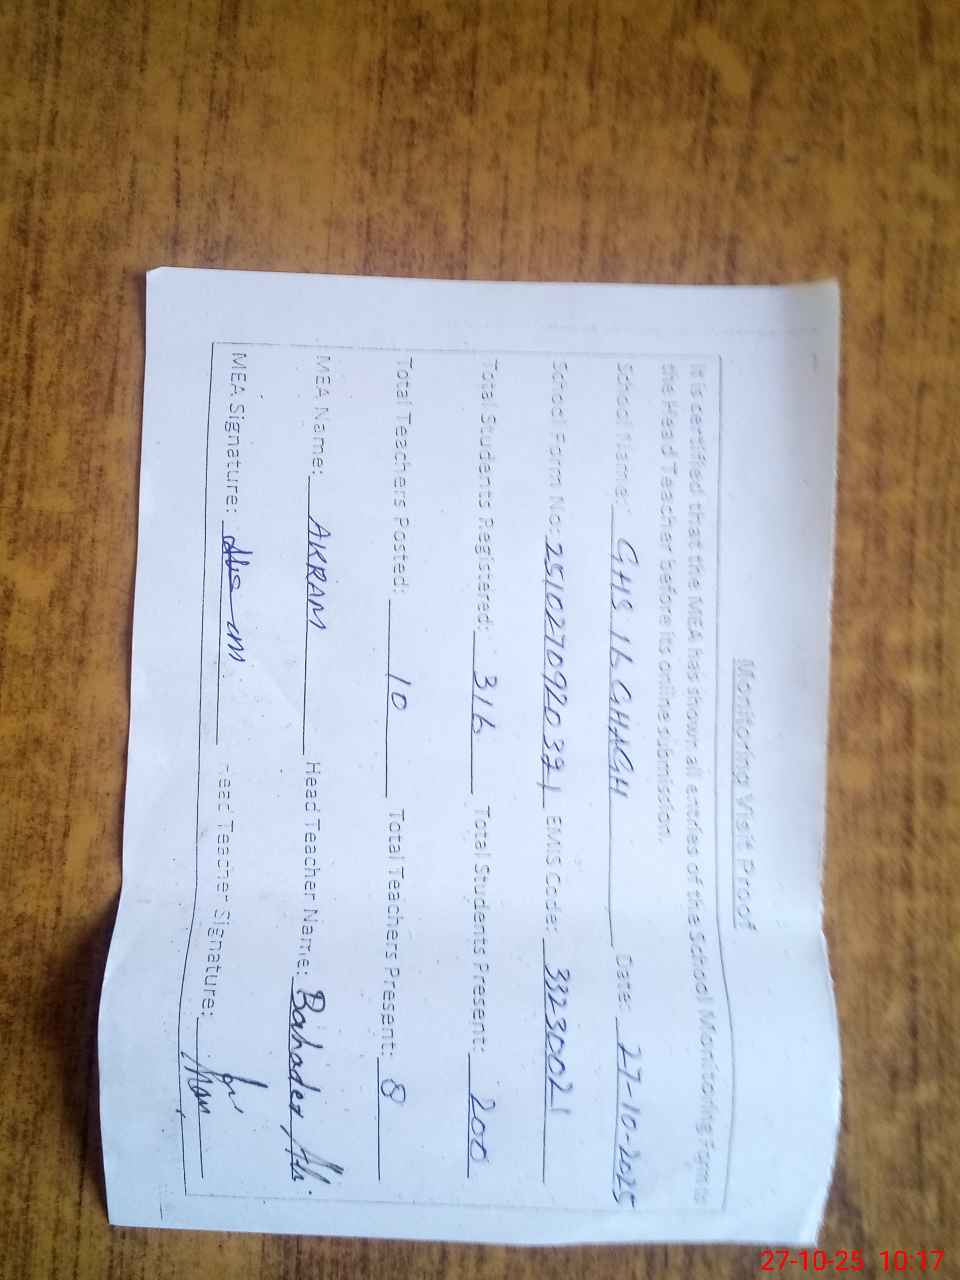 Monitoring Visit Proof
It is certified that the MEA has shown all entries of the School Monitoring Form to
the Head Teacher before its online submission.
School Name: GHS 16 GHAGH Date: 27-10-2025
School Form No: 2510270920371 EMIS Code: 33230021
Total Students Registered: 316 Total Students Present: 200
Total Teachers Posted: 10 Total Teachers Present: 8
MEA Name: AKRAM Head Teacher Name: Bahader Ali
MEA Signature: Head Teacher Signature:
27-10-25 10:17